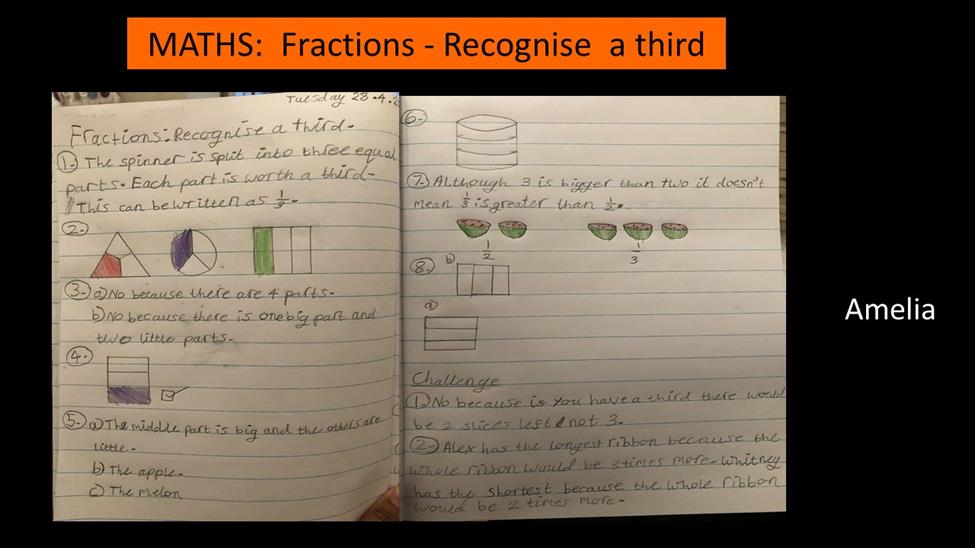 MATHS:  Fractions - Recognise  a third
Tuesday 28.4.2
Fractions: Recognise a third.
1. The spinner is split into three equal
parts. Each part is worth a third.
This can be written as 1/3.
2.
3. a) No because there are 4 parts.
b) No because there is one big part and
two little parts.
4.
5. a) The middle part is big and the others are
little.
b) The apple.
c) The melon
6.
7. Although 3 is bigger than two it doesn't
mean 1/3 is greater than 1/2.
1/2 1/3
8. b)
a)
Challenge
1. No because is you have a third there would
be 2 slices left not 3.
2. Alex has the longest ribbon because the
whole ribbon would be 3 times more. Whitney
has the shortest because the whole ribbon
would be 2 times more.
Amelia